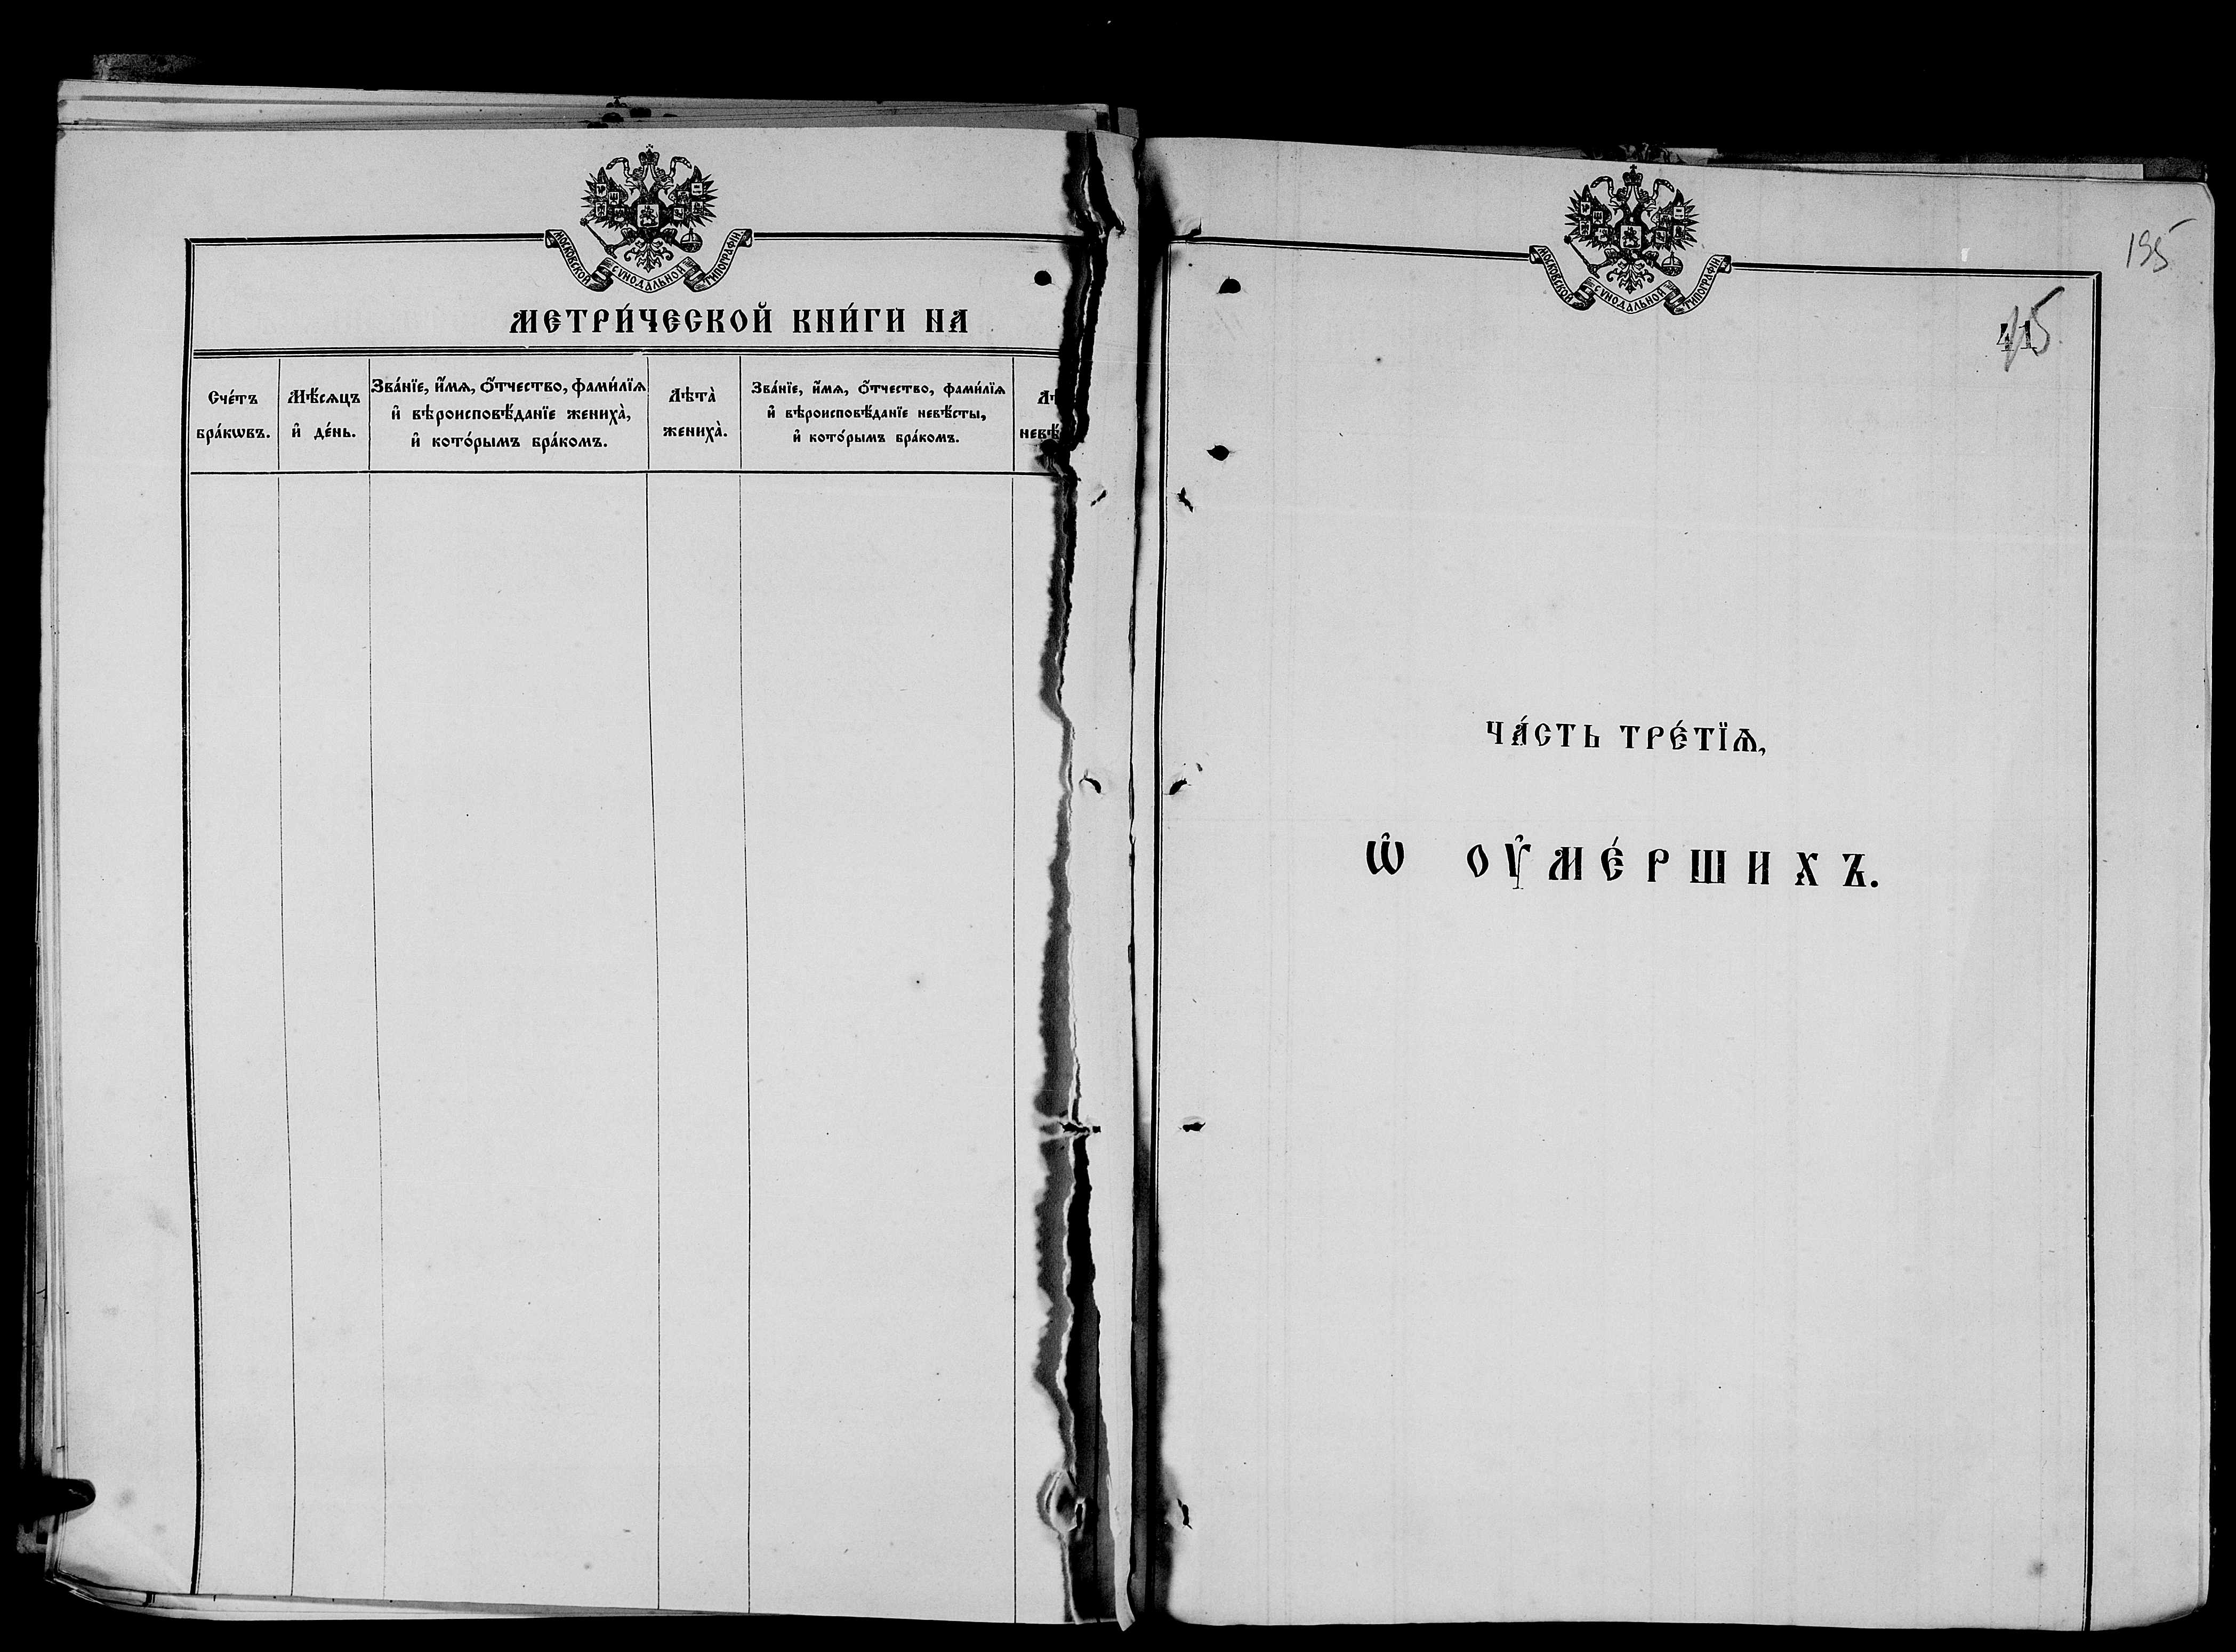 МОСКОВСКОЙ СѴНОДАЛЬНОЙ ТИПОГРАФІИ
МЕТРИ́ЧЕСКОЙ КНИ́ГИ НА
Сче́тъ
бра́кѡвъ.
Мѣ́сѧцъ
и҆ де́нь.
Зва́нїе, и҆́мѧ, ѻ҆́тчество, фами́лїѧ
и҆ вѣроисповѣ́данїе жениха̀,
и҆ кото́рымъ бра́комъ.
Лѣта̀
жениха̀.
Зва́нїе, и҆́мѧ, ѻ҆́тчество, фами́лїѧ
и҆ вѣроисповѣ́данїе невѣ́сты,
и҆ кото́рымъ бра́комъ.
Лѣ
невѣ́
МОСКОВСКОЙ СѴНОДАЛЬНОЙ ТИПОГРАФІИ
195
41
ЧА́СТЬ ТРЕ́ТЇѦ,
Ѡ҆ ОУ҆МЕ́РШИХЪ.